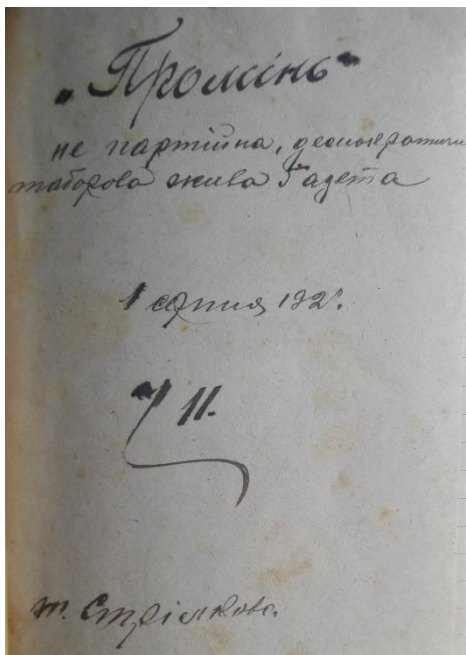 „Промінь"
не партійна, демократична
таборова жива Газета
1 серпня 1921.
Ч 11.
т. Стрілково.